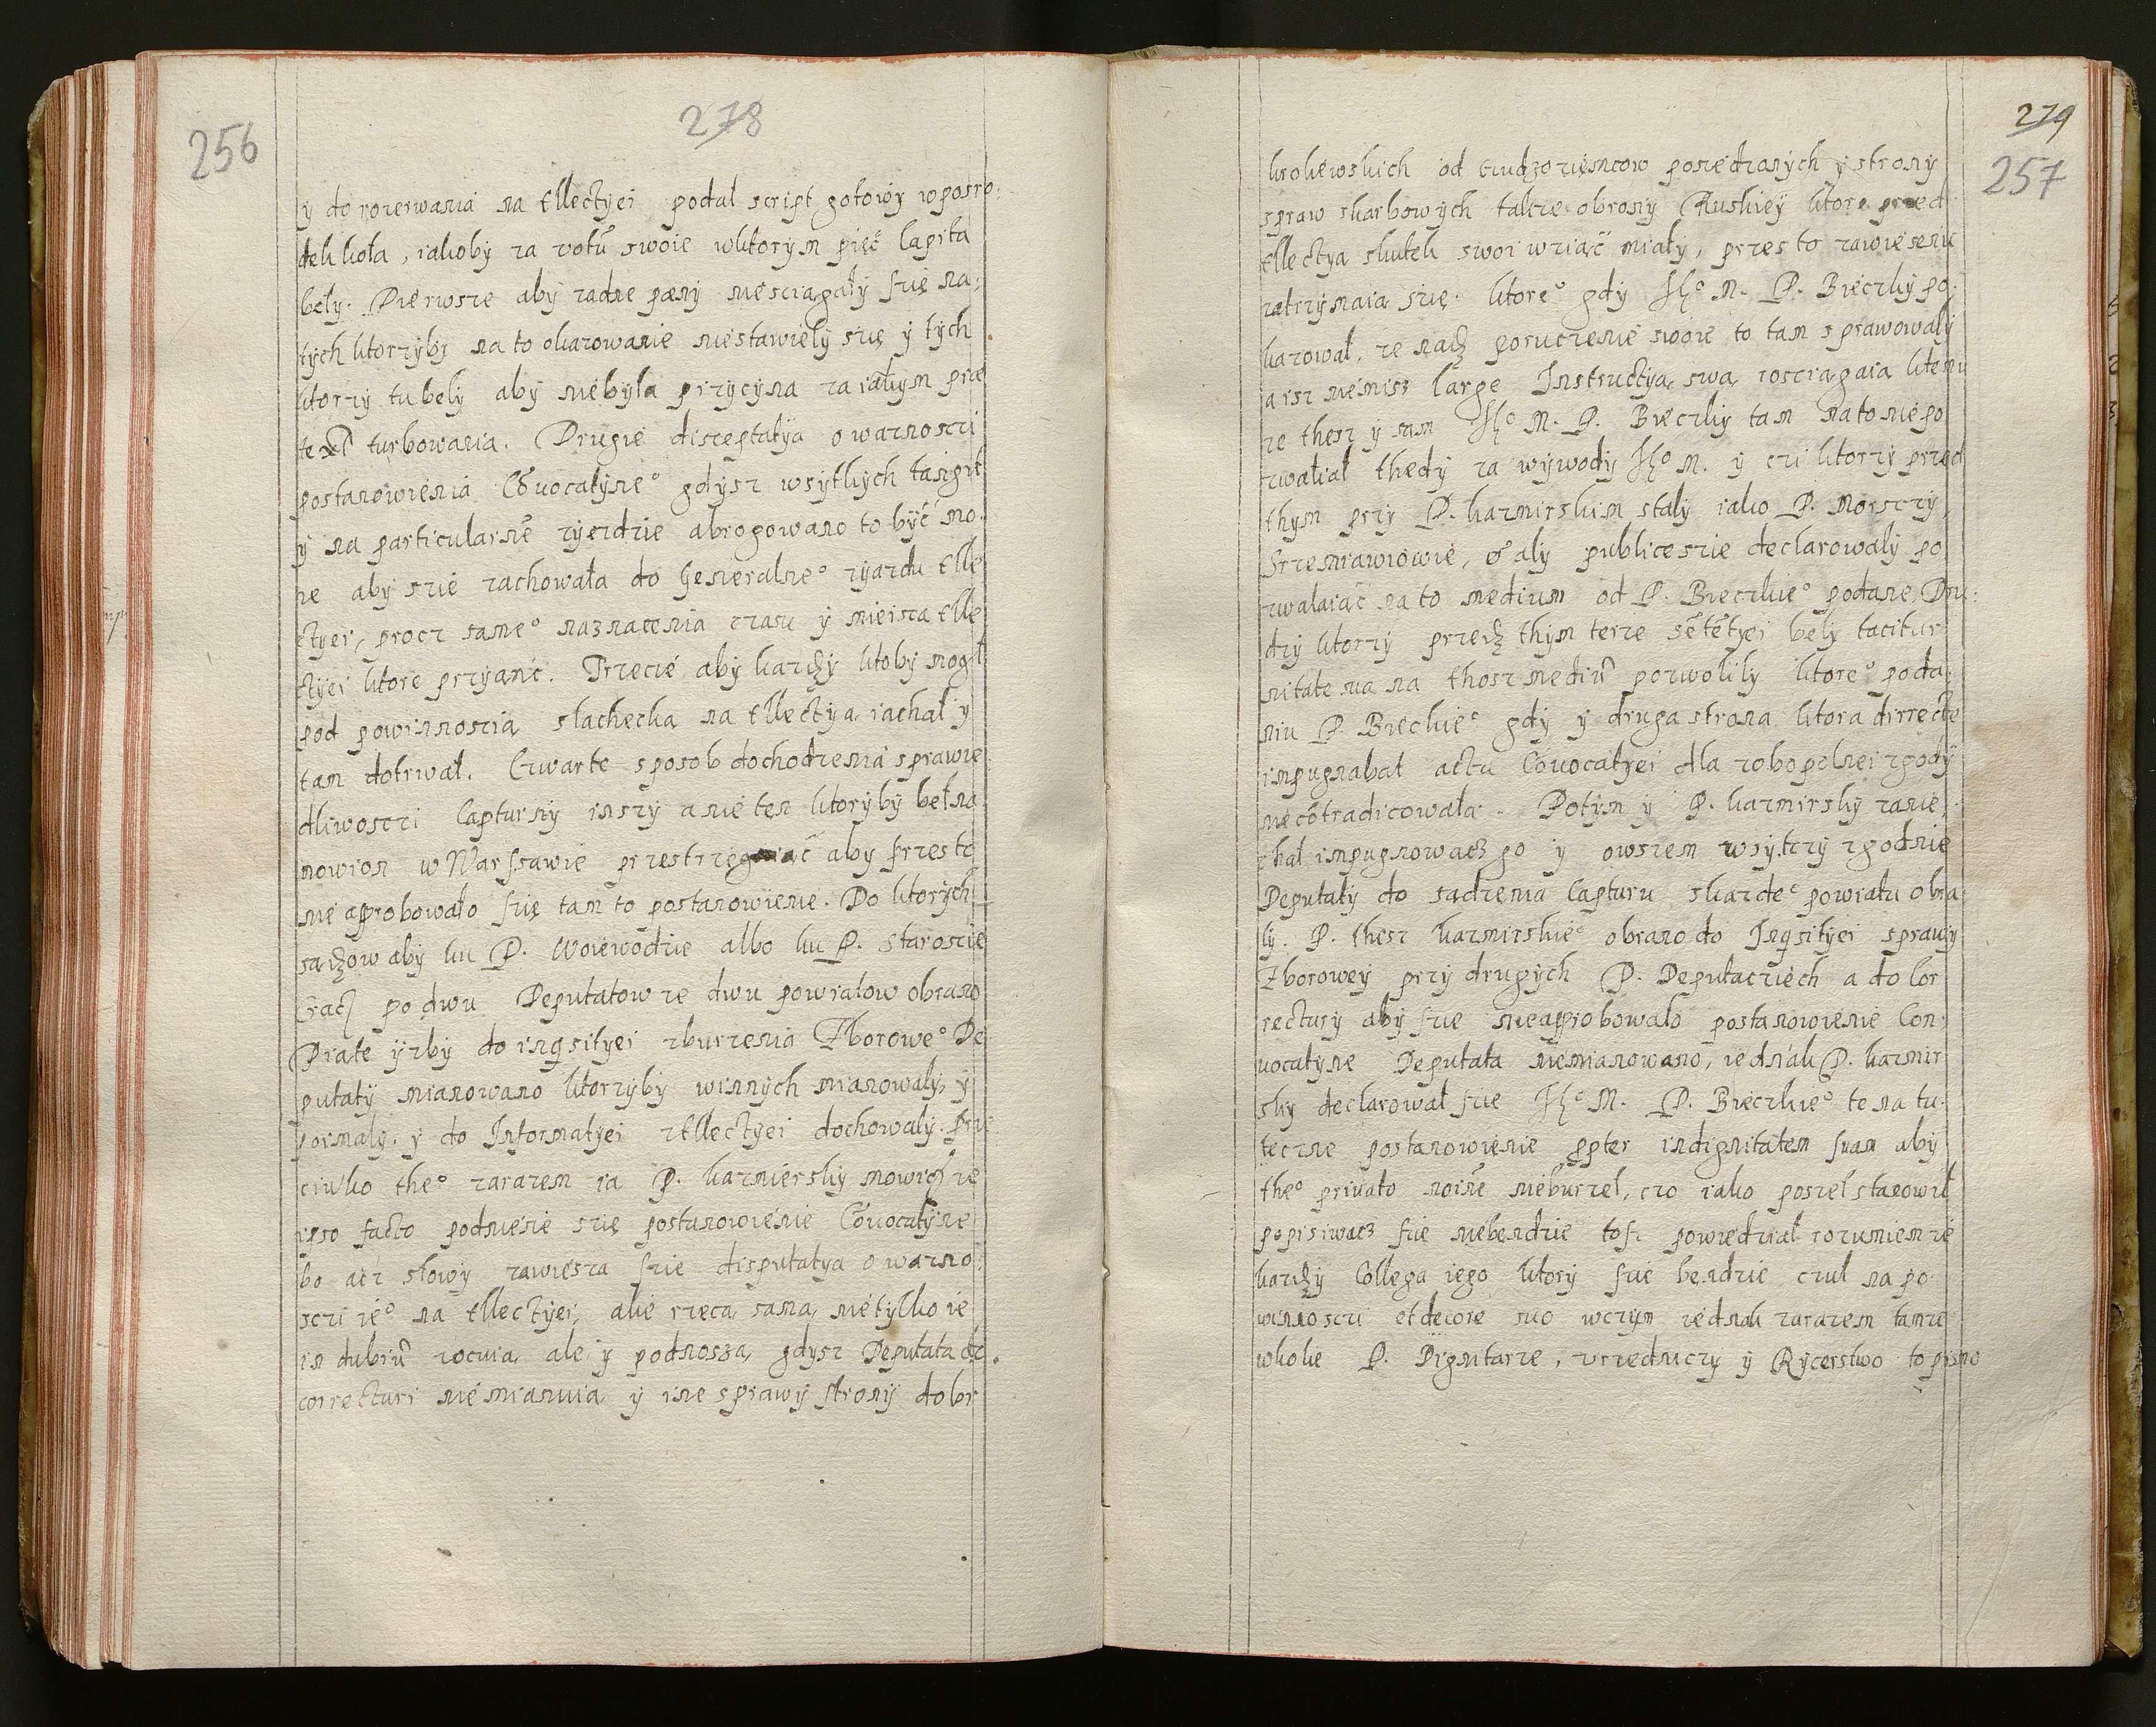 256
278
ÿ do rozerwania na Ellectyei podał script gotowy wposro-
dek koła, iakoby za votũ swoie wktorym pięć Capita
beły. Pierwsze aby zadne pæny niesciągały się na-
tych ktorzyby na to okazowanie niestawiely się y tych
ktorzy tu bely aby niebyła przyczyna za iakym pre
textẽ turbowania. Drugie disceptatÿa o waznosci
postanowienia Cõuocatÿne° gdysz wsytkych
ÿ na particularnẽ zyezdzie abrogowano to być mo-
ze aby szie zachowała do Generalne° zyazdu Elle
ctyei, procz same° naznaczenia czasu ÿ mieisca Elle
ctÿei ktore przyąnć. Trzecié aby kazdÿ ktoby mogł
pod powinnoscią slachecką na Ellectyą iachał ÿ
tam dotrwał. Czwarte sposob dochodzenia sprawie
dliwosci Capturny inszy a nie ten ktorÿby beł na
nowion w Warszawie przestrzegaiąć aby przesto
nie approbowało się tam to postanowienie. Do ktorych
sądzow aby ku P. Woiewodzie albo ku P. Staroscie
brać po dwu Deputatow ze dwu powiatow obrano
Piate ÿzby do inqsitÿei zburzenia Zborowe° De
putatÿ mianowano ktorzÿby winnÿch mianowaly, ÿ
poimaly. ÿ do Informatÿei zEllectÿei dochowalÿ. Prze
ciwko the° zarazem ia P. kazmierskÿ mowicz ze
ipso facto podniesie się postanowiénie Cõuocatÿne
bo acz słowÿ zawiesza szie disputatya o wazno-
sci ie° na Ellectÿei, ale rzecą samą nie tylko ie
in dubiũ zocuią ale ÿ podnoszą, gdysz Deputata do
correcturi niémianuią ÿ ine sprawÿ stronÿ dobr
279
257
krolewskich od cudzoziemcow posiedzanÿch ÿ stronÿ
spraw skarbowÿch takze obronÿ Ruskieÿ ktore przed
Ellectyą skutek swoi wziąć miałÿ, przes to zawieseniu
zatrzÿmaią się. ktore° gdÿ Jḣ° M. P. Biéczkÿ po-
kazował. ze nadz poruczenié swoie to tam sprawowalÿ
a isz niemisz large Instructyą swą rosciagaia ktemu
ze thesz ÿ sam Jḣ° M. P. Biéczkiÿ tam nato niepo
zwalał thedÿ za wÿwodÿ Jḣ° M. ÿ czi ktorzÿ przed
thym przÿ P. kazmirskim stalÿ iako P. Morsczÿ,
Srzeniawiowie, & alÿ publice szie declarowalÿ po
zwalaiać na to medium od P. Bieczkie° podane Dru-
dzÿ ktorzÿ przedz thÿm teize sẽtẽtÿei belÿ tacitur
nitate sua na thosz mediũ pozwolilÿ ktore° poda-
niu P. Biechie° gdÿ ÿ druga strona ktora dirrecte
impugnabat actũ Cõuocatÿei dla zobopolnei zgodÿ
niecõtradicowała. Potÿm ÿ P. kazmirskÿ zanie-
chał impugnowacz go ÿ owszem wsÿtczÿ zgodnie
Deputatÿ do sądzenia Capturu skazde° powiatu obra-
lÿ. P. thesz kazmirskie° obrano do Inqsitÿei sprawÿ
Zboroweÿ przÿ drugÿch P. Deputacziech a do Cor
recturÿ abÿ szie nieapprobowało postanowienie Con-
uocatÿne Deputata niemianowano, iednák P. kazmir
skÿ declarował szie Jḣ° M. P. Biéczkie° to na tu-
teczne postanowienie ꝓpter indignitatem suam abÿ
the° priuato noiñe nieburzeł, czo iako poszeł stanowił
popisiwacz szie niébendzie tosz powiedział rozumiem ze
kazdÿ Collega iego ktorÿ szie bendzie czuł na po-
winnosczi et decore suo wczÿm iednak zarazem tamze
wkole P. Dignitarze, vrzedniczÿ ÿ Rÿcerstwo to pismo